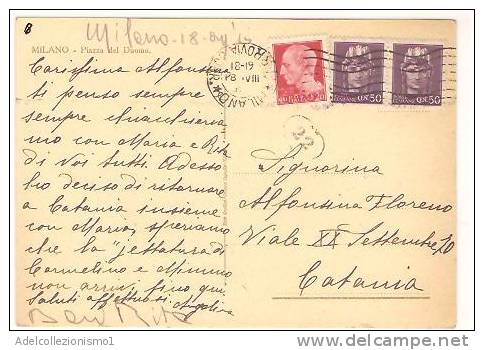 Milano - 18.
MILANO - Piazza del Duomo.
Carissima Alfonsina
ti penso sempre e
sempre chiacchieria
mo con Maria e Rita
di Voi tutti. Adesso
ho deciso di ritornare
a Catania insieme
con Maria, speriamo
che la "jettatura di
Carmelino e Mimmo
non arrivi fino qui
Saluti affettuosi Angelina
Baci Rita
18-19
18 · VIII
MILANO
50
50
22
Signorina
Alfonsina Floreno
Viale XX Settembre, 20
Catania
Adelcollezionismo1
delcampe.net